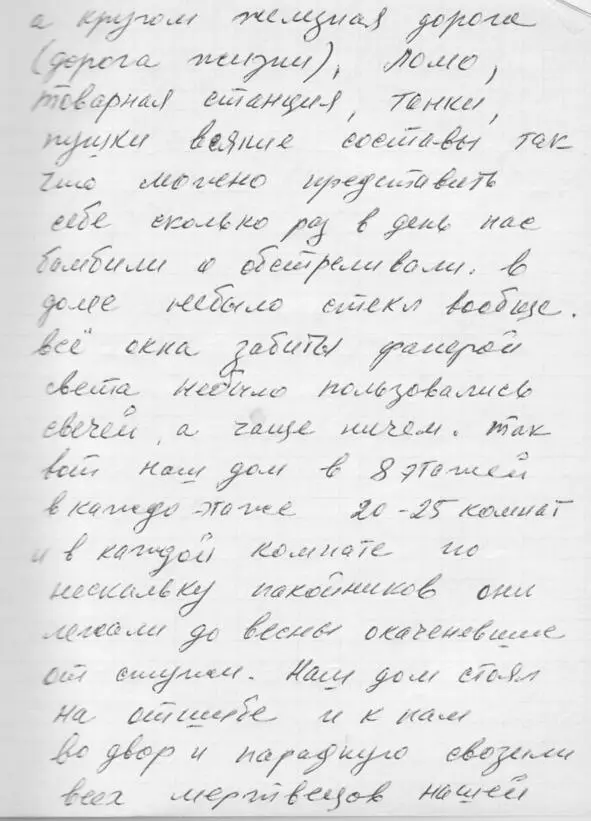 а кругом железная дорога
(дорога жизни), ломо,
товарная станция, танки,
пушки всякие составы так
что можно представить
себе сколько раз в день нас
бомбили и обстреливали. в
доме небыло стекл вообще.
всё окна забиты фанерой
света небыло пользовались
свечей, а чаще ничем. так
вот наш дом в 8 этажей
в каждо этаже 20-25 комнат
и в каждой комнате по
нескальку пакойников они
лежали до весны окаченевшие
от стужи. Наш дом стоял
на отшибе и к нам
во двор и парадную свозили
всех мертвецов нашей